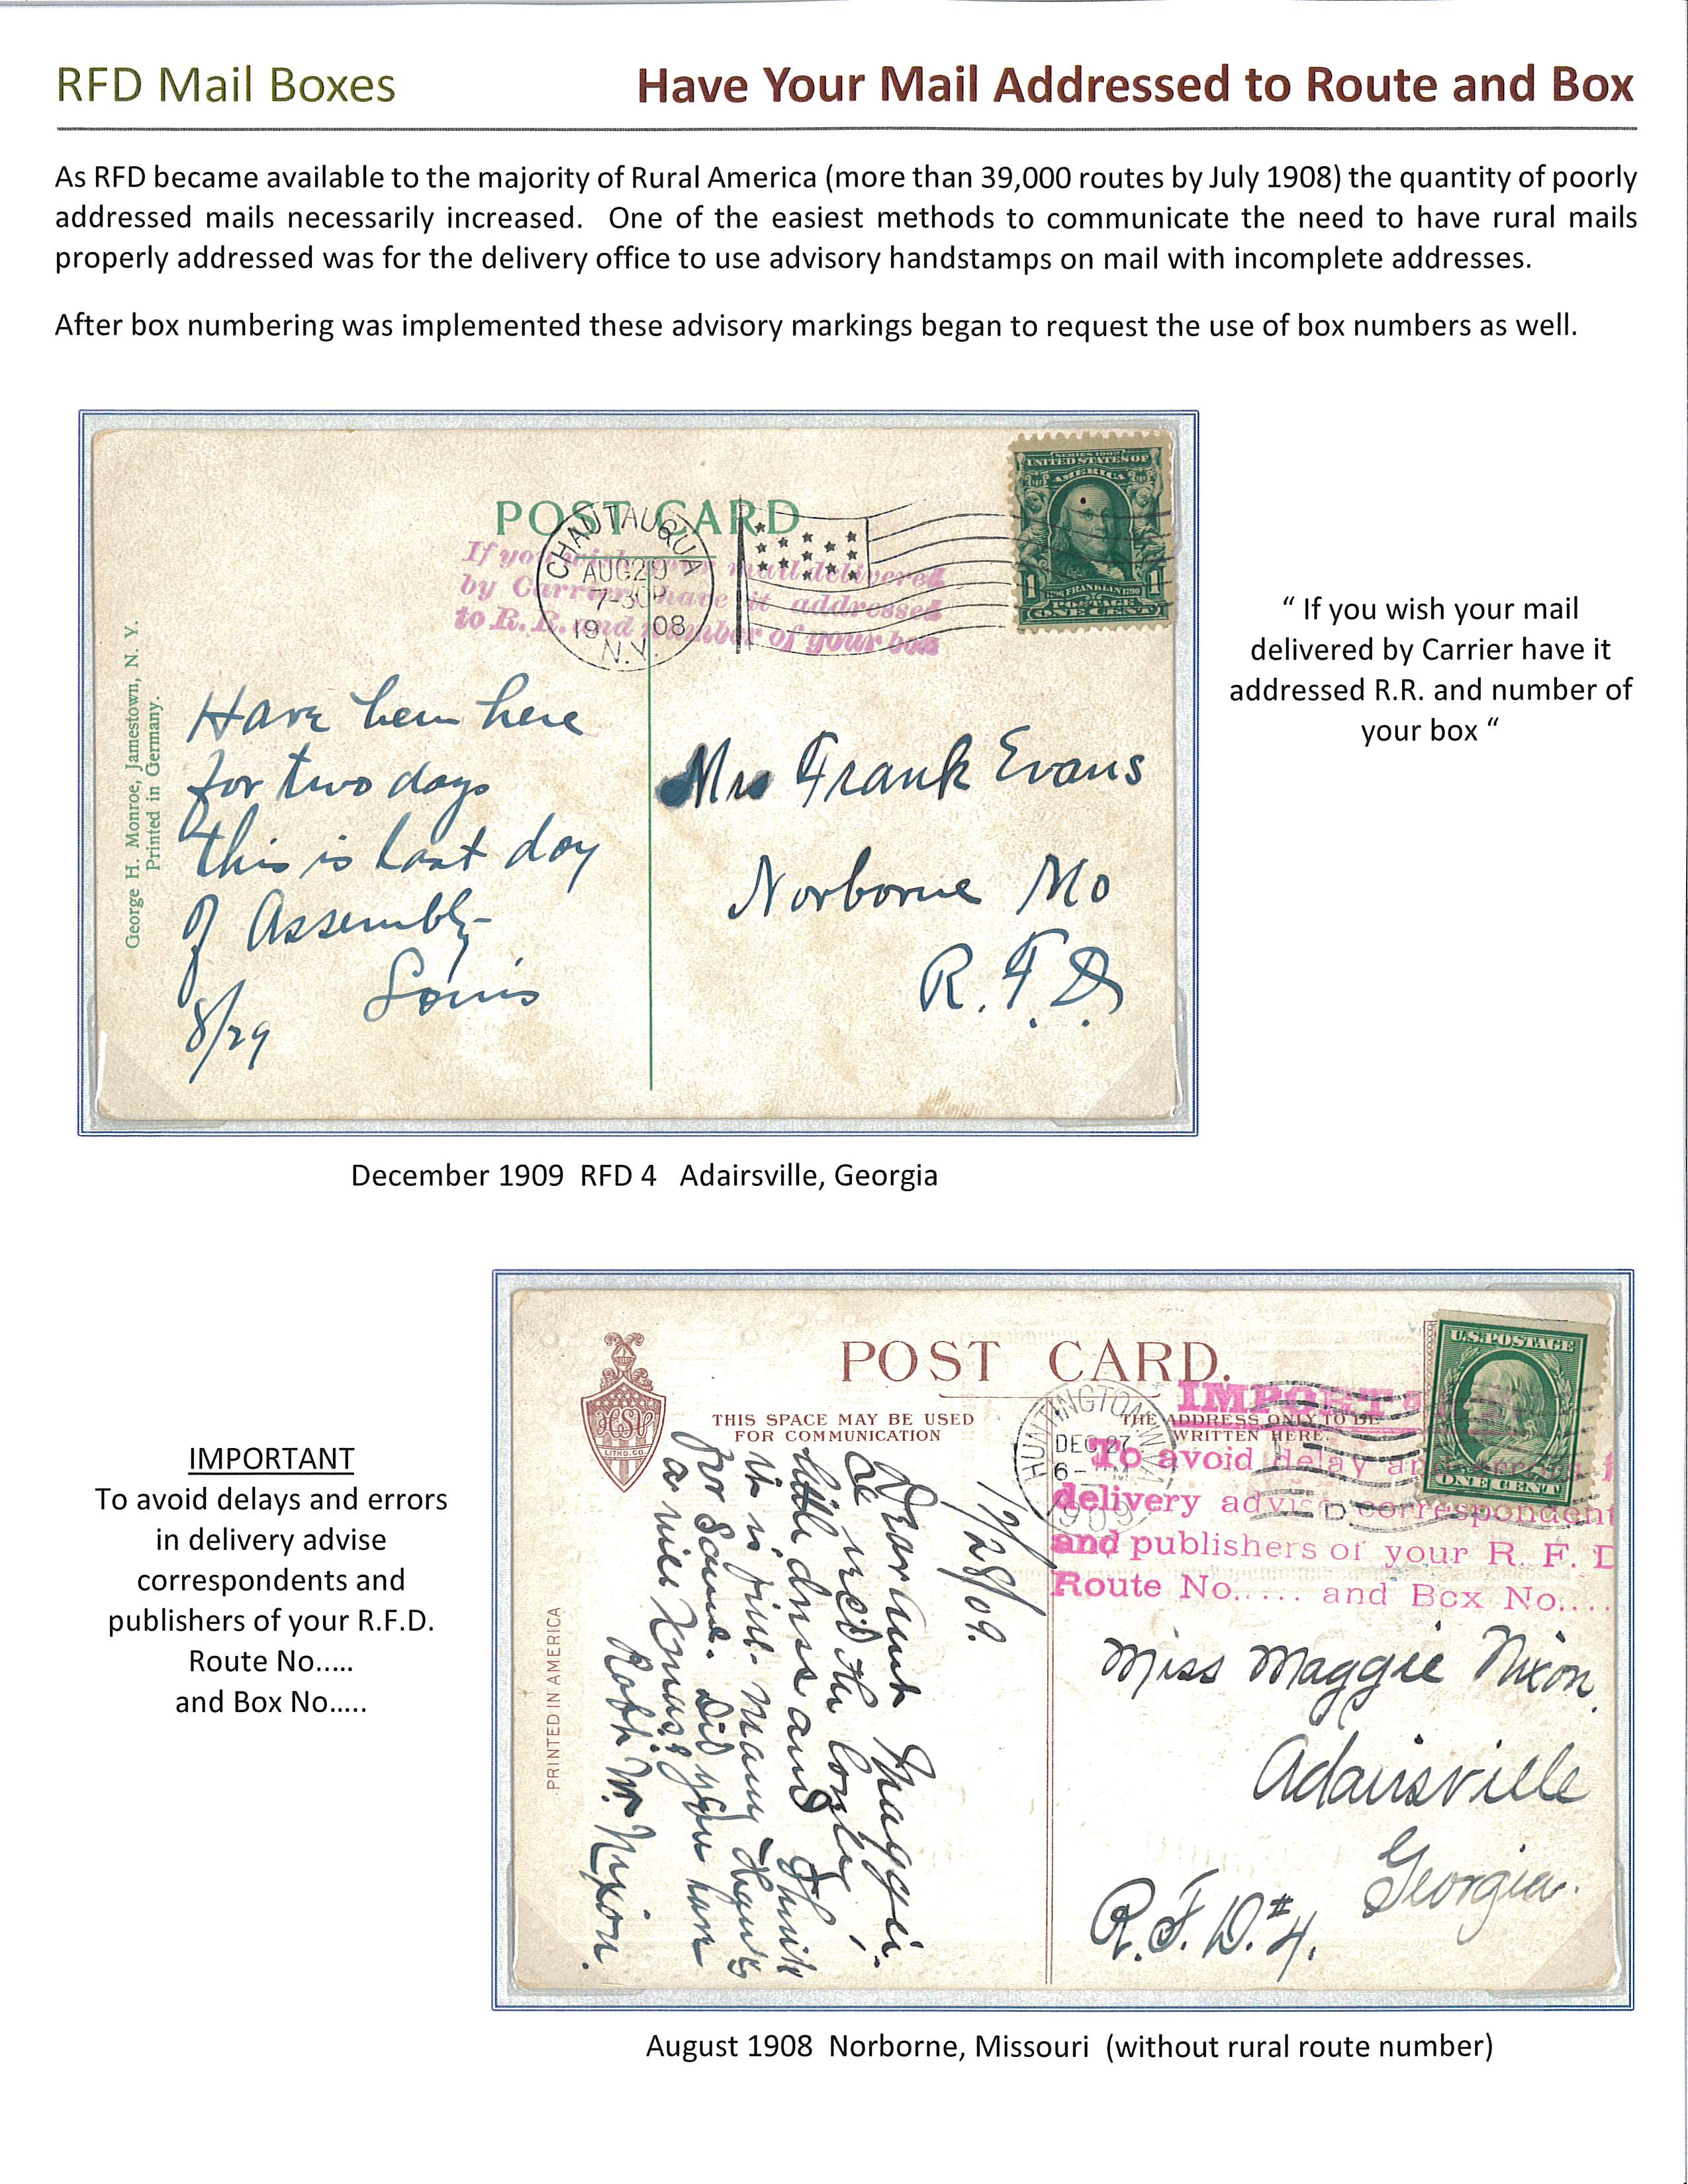 RFD Mail Boxes
Have Your Mail Addressed to Route and Box
As RFD became available to the majority of Rural America (more than 39,000 routes by July 1908) the quantity of poorly
addressed mails necessarily increased. One of the easiest methods to communicate the need to have rural mails
properly addressed was for the delivery office to use advisory handstamps on mail with incomplete addresses.
After box numbering was implemented these advisory markings began to request the use of box numbers as well.
POST CARD
If you wish your mail delivered
by Carrier have it addressed
to R. R. and number of your box
CHAUTAUQUA
AUG 29
7-30P
19 08
N.Y.
SERIES 1902
UNITED STATES OF
AMERICA
1 1
FRANKLIN
POSTAGE
ONE CENT
George H. Monroe, Jamestown, N. Y.
Printed in Germany.
Have been here
for two days
this is last day
of Assembly-
Louis
8/29
Mrs Frank Evans
Norborne Mo
R. F. D.
“ If you wish your mail
delivered by Carrier have it
addressed R.R. and number of
your box “
December 1909 RFD 4 Adairsville, Georgia
IMPORTANT
To avoid delays and errors
in delivery advise
correspondents and
publishers of your R.F.D.
Route No.....
and Box No.....
POST CARD.
THIS SPACE MAY BE USED
FOR COMMUNICATION
THE ADDRESS ONLY TO BE
WRITTEN HERE.
HSV
LITHO. CO.
PRINTED IN AMERICA
HUNTINGTON
DEC 27
6-
1909
D
U.S. POSTAGE
ONE CENT
IMPORT
To avoid delay and
delivery advise correspondent
and publishers of your R. F. D
Route No..... and Box No....
12/28/09.
Dear Aunt Maggie.
the lovely
little dress and think
it is fine. Many thanks
for same. Did you have
a nice Xmas?
Robt. W. Nixon.
Miss Maggie Nixon,
Adairsville
Georgia.
R. F. D. #4.
August 1908 Norborne, Missouri (without rural route number)